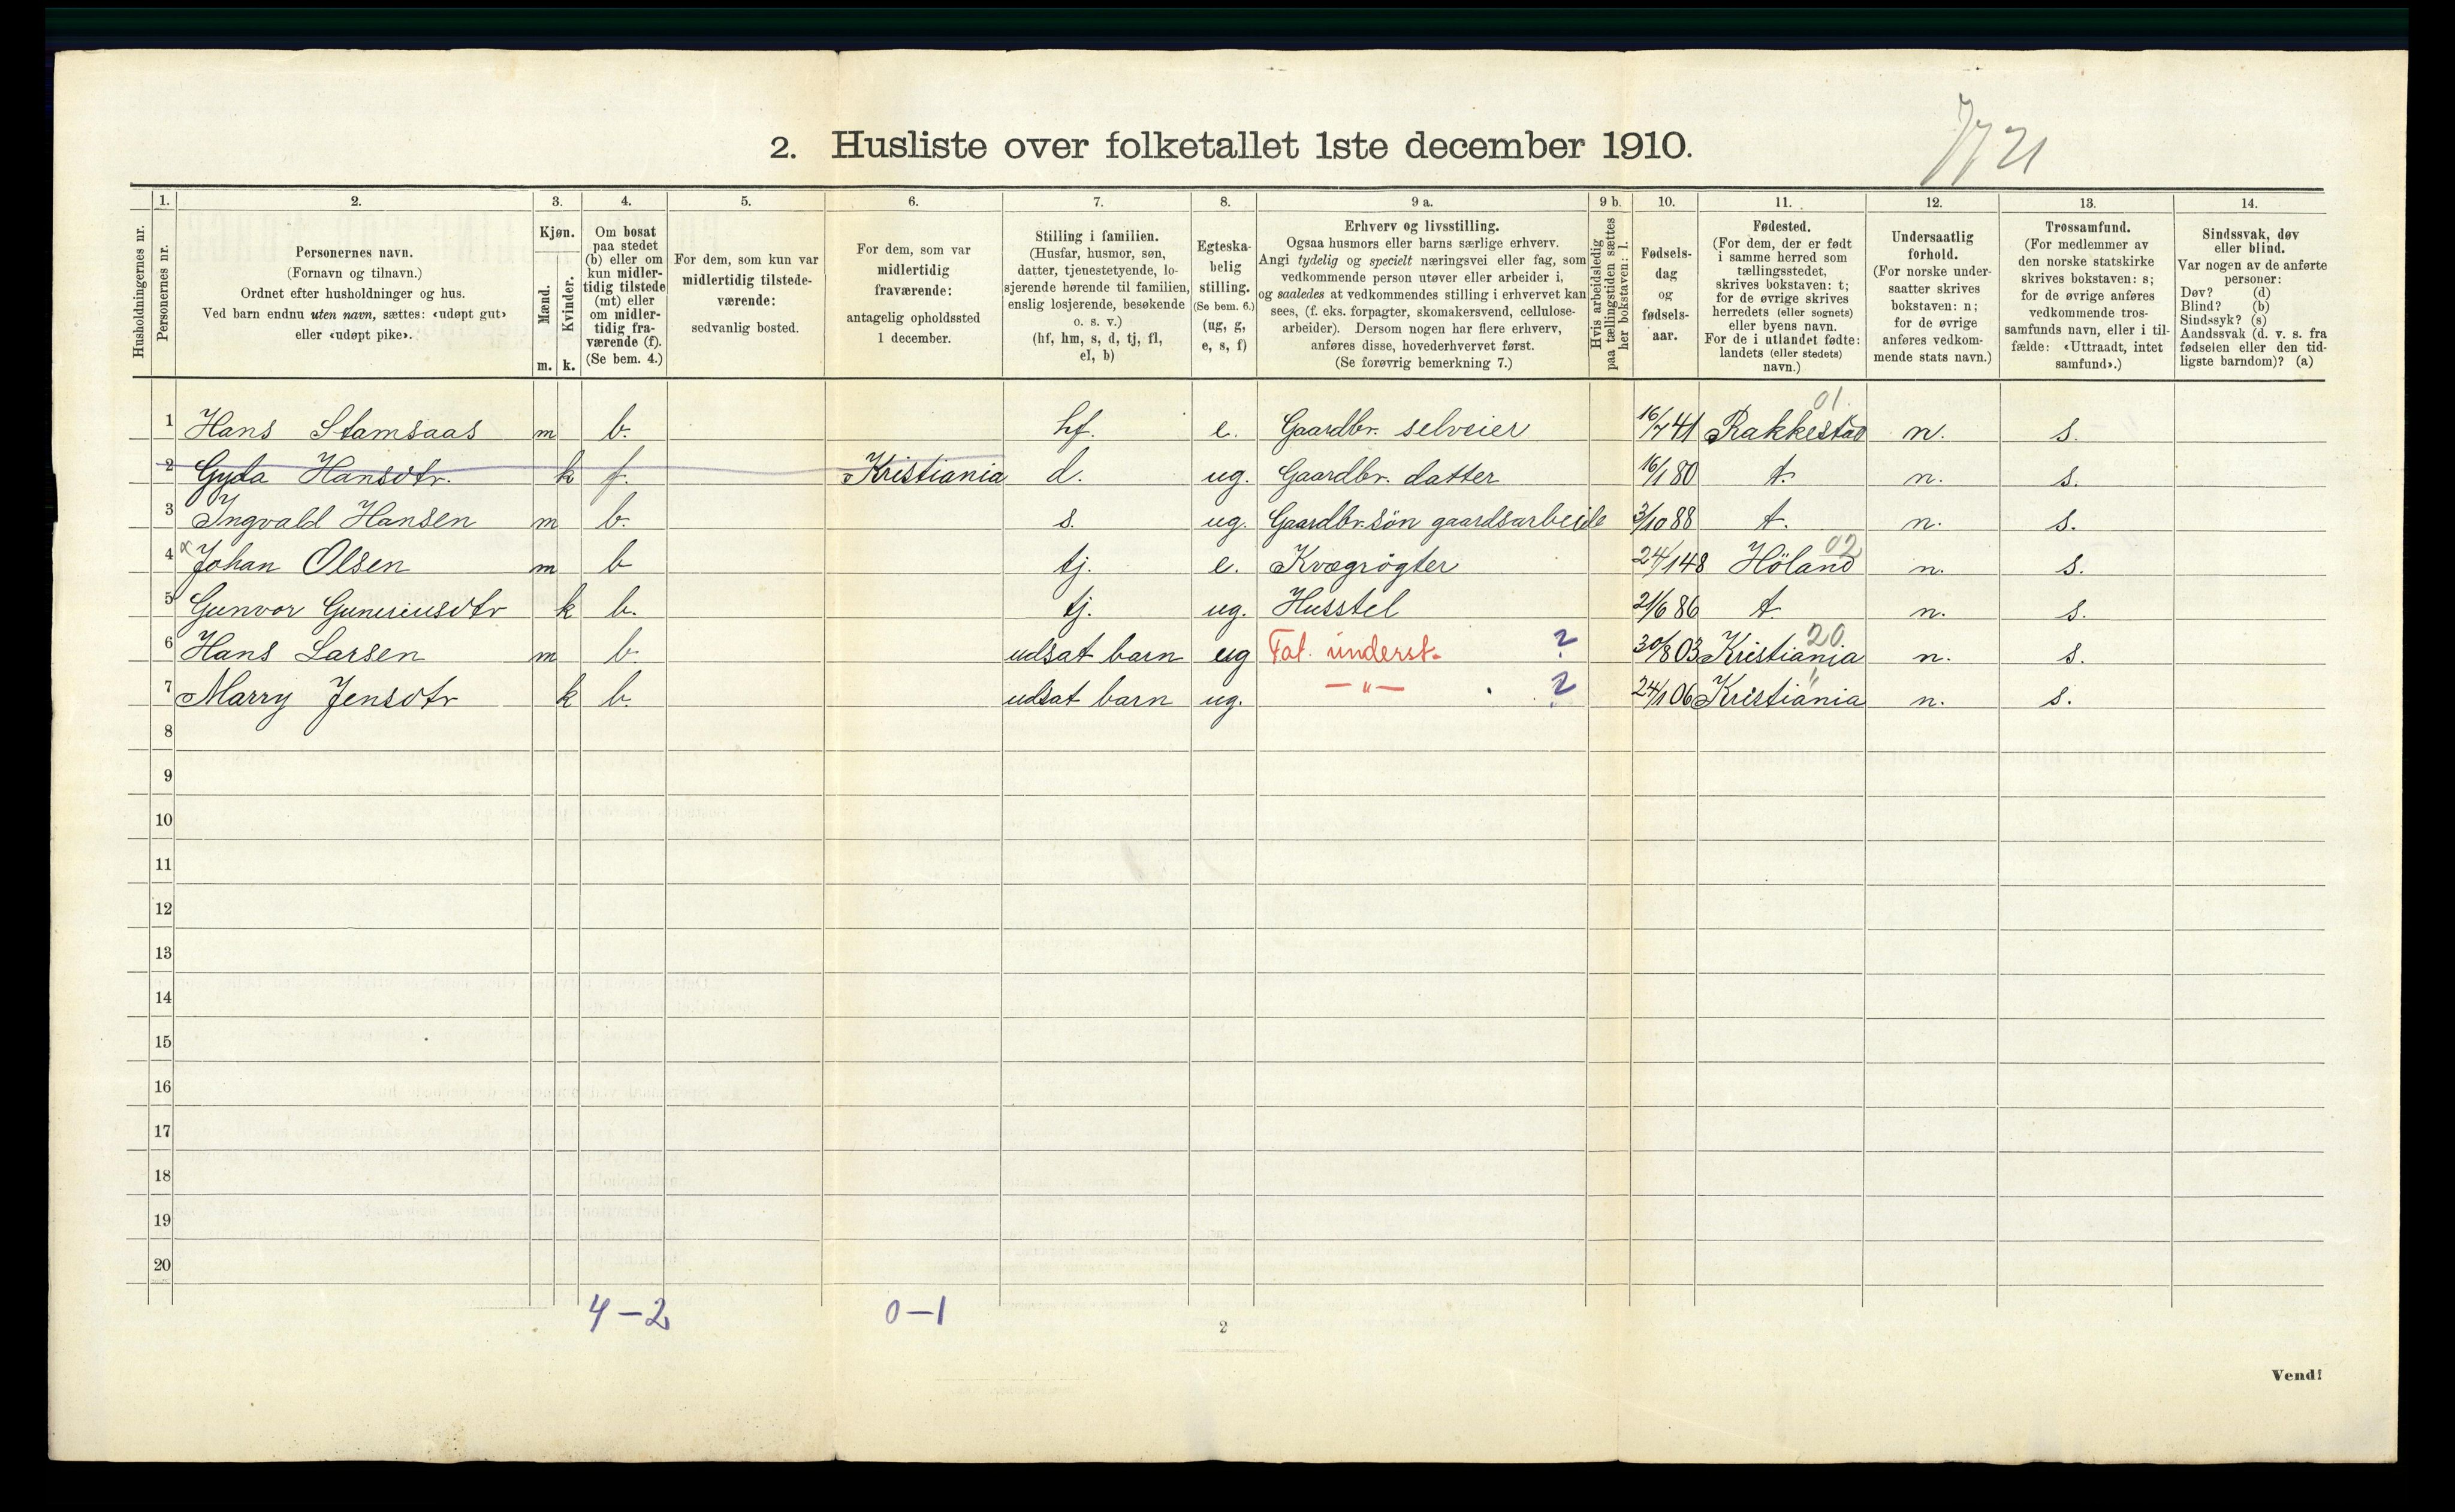 7721
2. Husliste over folketallet 1ste december 1910.
Husholdningernes nr.
1. Personernes nr.
2. Personernes navn. (Fornavn og tilnavn.) Ordnet efter husholdninger og hus. Ved barn endnu uten navn, sættes: «udøpt gut» eller «udøpt pike».
3. Kjøn. Mænd. m. Kvinder. k.
4. Om bosat paa stedet (b) eller om kun midlertidig tilstede (mt) eller om midlertidig fraværende (f). (Se bem. 4.)
5. For dem, som kun var midlertidig tilstedeværende: sedvanlig bosted.
6. For dem, som var midlertidig fraværende: antagelig opholdssted 1 december.
7. Stilling i familien. (Husfar, husmor, søn, datter, tjenestetyende, losjerende hørende til familien, enslig losjerende, besøkende o. s. v.) (hf, hm, s, d, tj, fl, el, b)
8. Egteskabelig stilling. (Se bem. 6.) (ug, g, e, s, f)
9 a. Erhverv og livsstilling. Ogsaa husmors eller barns særlige erhverv. Angi tydelig og specielt næringsvei eller fag, som vedkommende person utøver eller arbeider i, og saaledes at vedkommendes stilling i erhvervet kan sees, (f. eks. forpagter, skomakersvend, cellulosearbeider). Dersom nogen har flere erhverv, anføres disse, hovederhvervet først. (Se forøvrig bemerkning 7.)
9 b. Hvis arbeidsledig paa tællingstiden sættes her bokstaven: l.
10. Fødselsdag og fødselsaar.
11. Fødested. (For dem, der er født i samme herred som tællingsstedet, skrives bokstaven: t; for de øvrige skrives herredets (eller sognets) eller byens navn. For de i utlandet fødte: landets (eller stedets) navn.)
12. Undersaatlig forhold. (For norske undersaatter skrives bokstaven: n; for de øvrige anføres vedkommende stats navn.)
13. Trossamfund. (For medlemmer av den norske statskirke skrives bokstaven: s; for de øvrige anføres vedkommende trossamfunds navn, eller i tilfælde: «Uttraadt, intet samfund».)
14. Sindssvak, døv eller blind. Var nogen av de anførte personer: Døv? (d) Blind? (b) Sindssyk? (s) Aandssvak (d. v. s. fra fødselen eller den tidligste barndom)? (a)
01.
1 Hans Stamsaas m b. hf. e. Gaardbr. selveier 16/7 41 Rakkestad n. s.
2 Gyda Hansdtr. k f. Kristiania d. ug. Gaardbr. datter 16/1 80 t. n. s.
3 Ingvald Hansen m b. s. ug. Gaardbr. søn gaardsarbeide 3/10 88 t. n. s.
02
4 x Johan Olsen m b tj. e. Kvægrøgter 24/1 48 Höland n. s.
5 Gunvor Guneriusdtr k b. tj. ug. Husstel 21/6 86 t. n. s.
20
6 Hans Larsen m b. udsat barn ug Fat. underst. ? 30/8 03 Kristiania n. s.
7 Marry Jensdtr k b. udsat barn ug. — " — ? 24/1 06 Kristiania n. s.
8
9
10
11
12
13
14
15
16
17
18
19
20
4 — 2 0 — 1
2
Vend!